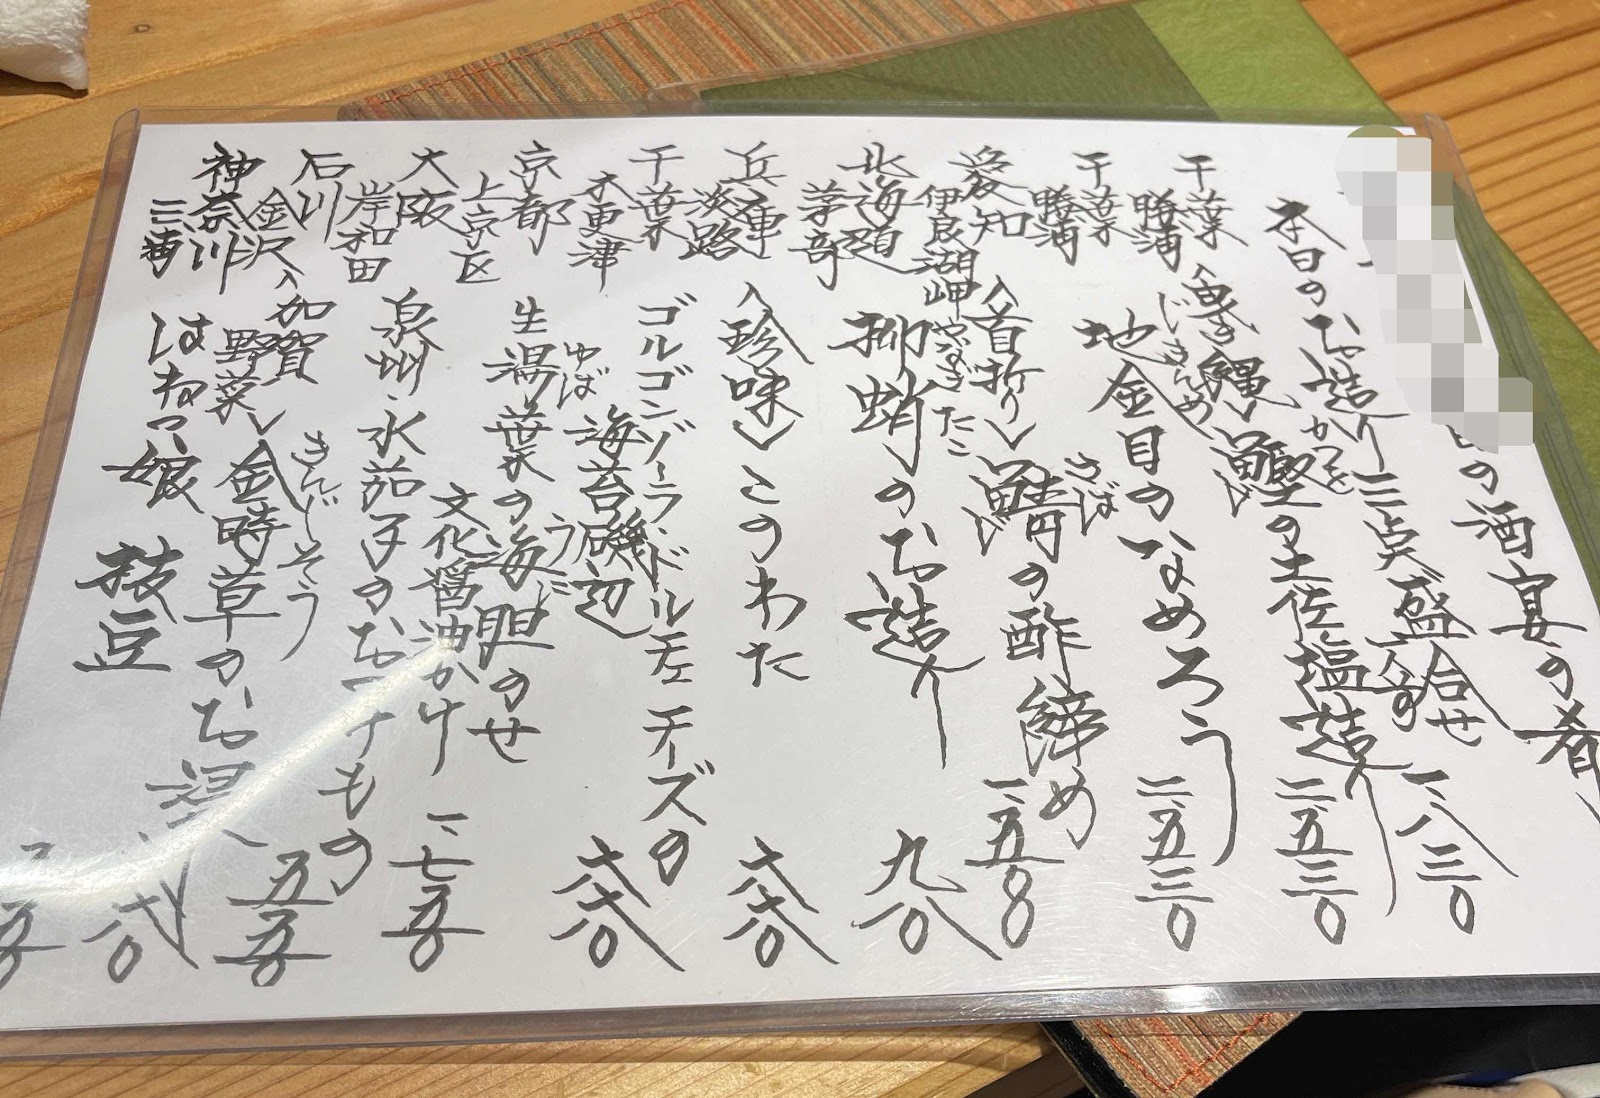 日の酒宴の肴
本日のお造り三点盛合せ 一、八三〇
千葉 勝浦 〈曳き縄〉 鰹の土佐塩造り 二、五三〇
かつを
千葉 勝浦 地金目のなめろう 二、五三〇
じきんめ
愛知 伊良湖岬 〈首折り〉 鯖の酢〆め 一、五〇〇
さば
北海道 茅部 柳蛸のお造り 九八〇
やなぎたこ
兵庫 淡路 〈珍味〉 このわた 六八〇
千葉 木更津 ゴルゴンゾーラ・ドルチェチーズの海苔磯辺 六八〇
京都 上京区 生湯葉の海胆のせ 文化醤油かけ 一、七五〇
ゆば
うに
大阪 岸和田 泉州・水茄子のおつけもの 五五〇
石川 金沢 〈加賀野菜〉 金時草のお浸し 八〇
きんじそう
神奈川 三浦 はねっ娘 枝豆